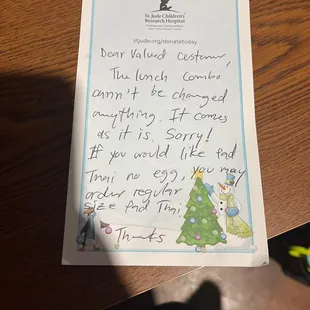 St. Jude Children's
Research Hospital
stjude.org/donatetoday
Dear Valued Customr,
The lunch Combo
cann't be changed
anything. It comes
as it is. Sorry!
If you would like Pad
Thai no egg, you may
order regular
size Pad Thai,
Thanks